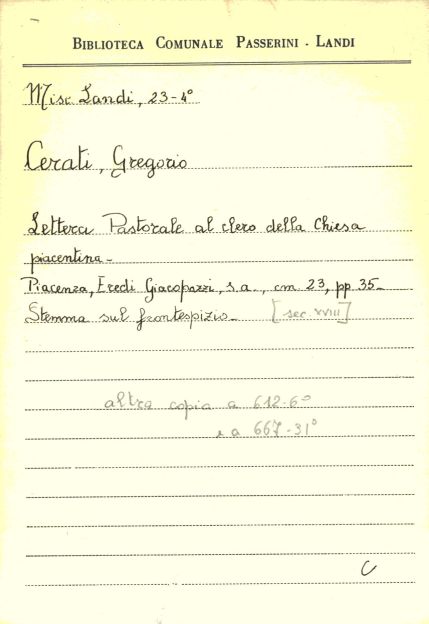 BIBLIOTECA COMUNALE PASSERINI - LANDI
Misc Landi, 23-4°
Cerati, Gregorio
Lettera Pastorale al clero della Chiesa
piacentina -
Piacenza, Eredi Giacopazzi, s.a., cm 23, pp. 35 -
Stemma sul frontespizio - [sec XVIII]
altra copia a 612-6°
e a 667-31°
C